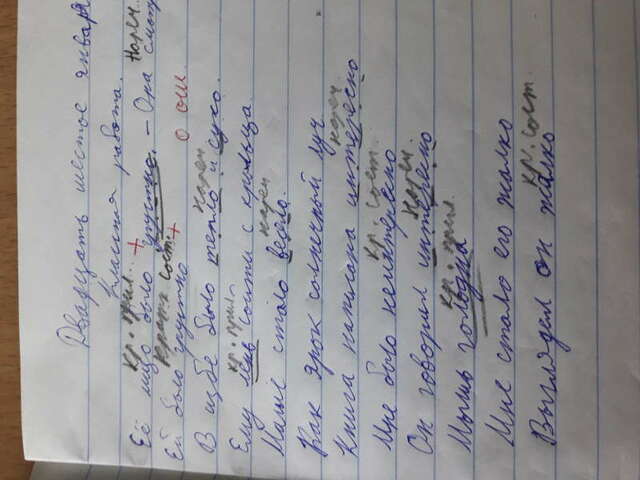 Двадцать шестое января
Классная работа.
кр. прил. + Нареч.
Её лицо было грустно. – Она смот
Кратк сост. +
Ей было грустно 0 ош.
нареч
В избе было тепло и сухо.
кр. прил
Ему лень сойти с крыльца.
нареч
Маше стало весело.
Как ярок солнечный луч
нареч.
Книга написана интересно
кр. сост.
Мне было неинтересно
Нареч
Он говорил интересно
кр. прил.
Мышь голодна
Мне стало его жалко
кр. сост.
Выглядел он жалко